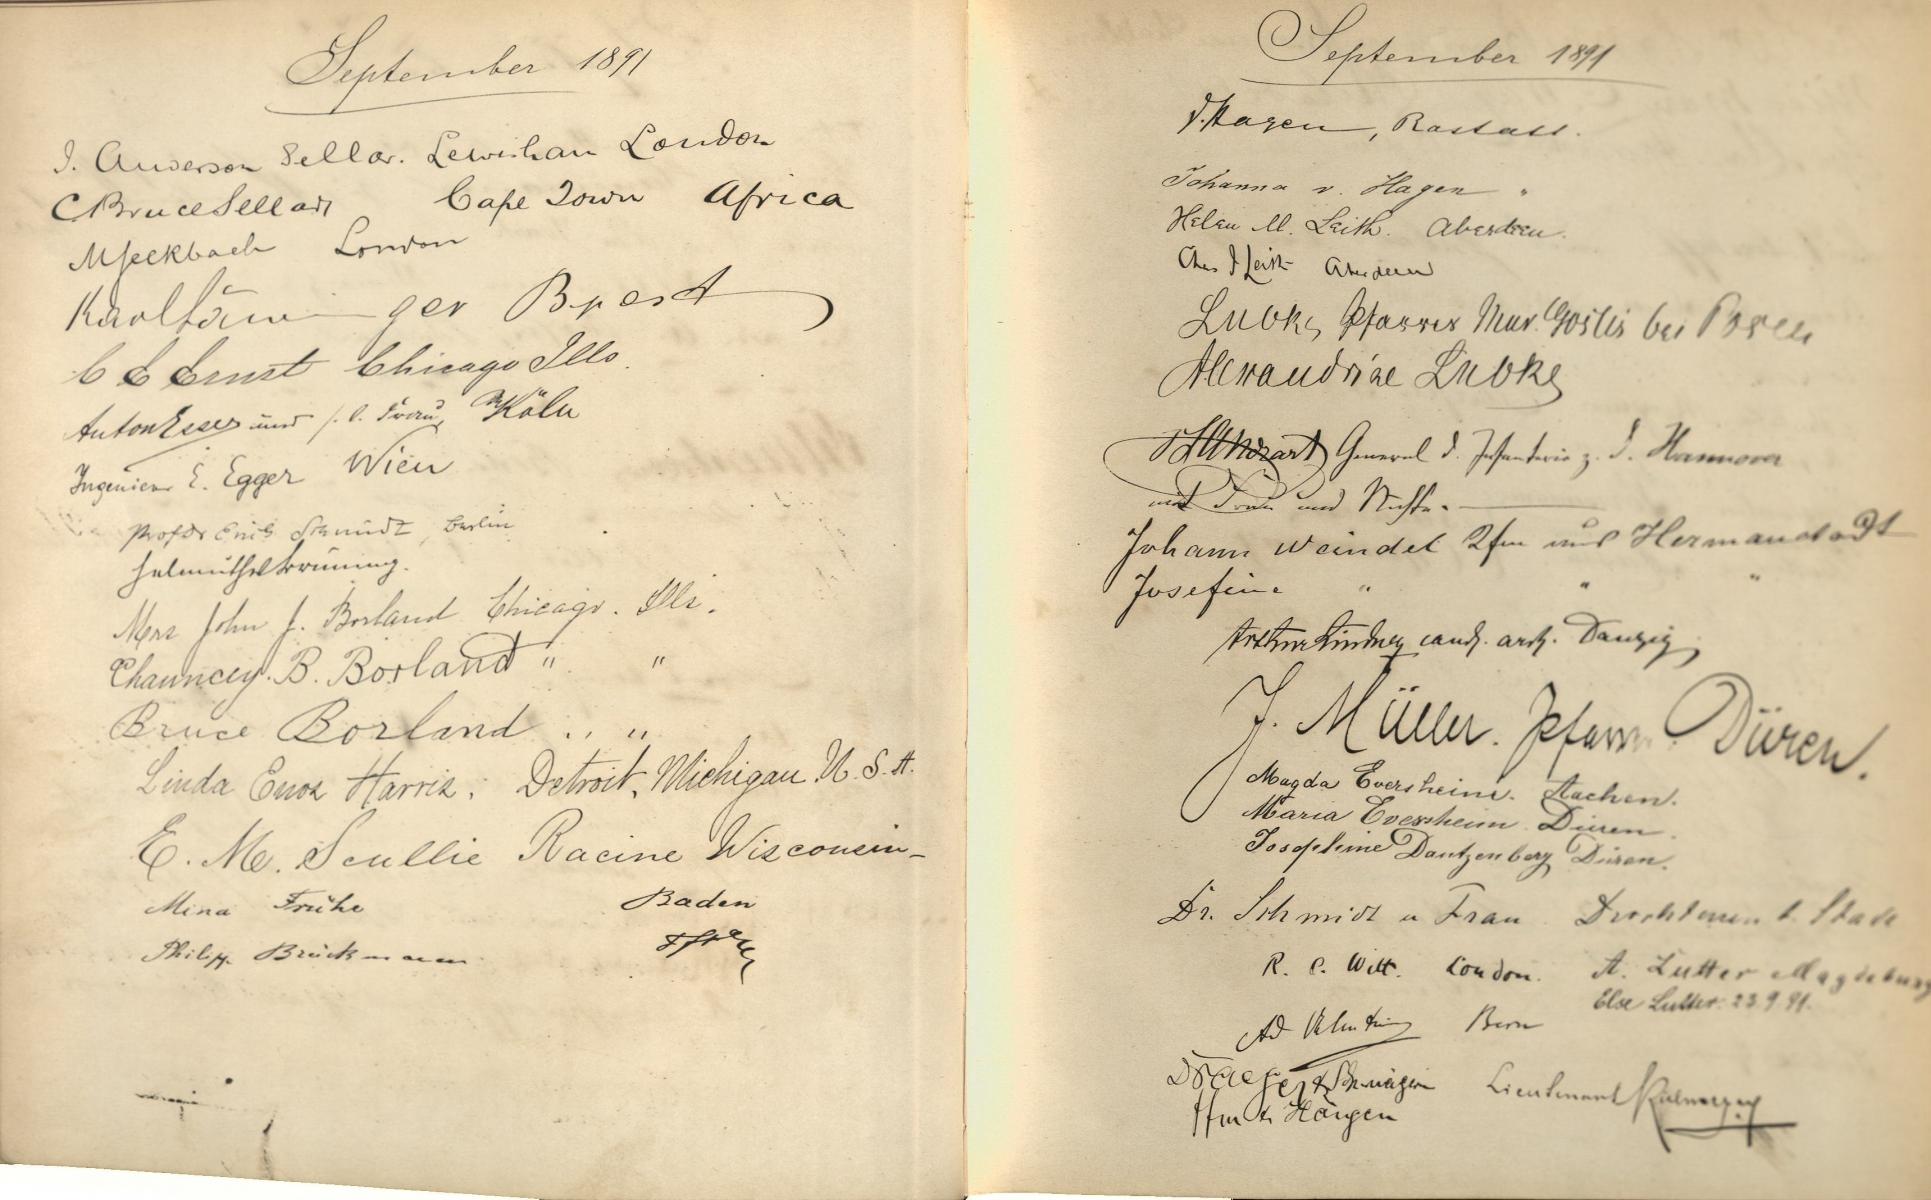 September 1891
J. Anderson Sellar. Lewisham London
C Bruce Sellar Cape Town Africa
London
Karl Bpest
C C Ernst Chicago Ills.
Anton Esser und Frau, Köln
Ingenieur E. Egger Wien
Profdr Erich Schmidt, Berlin
Mrs John J. Borland Chicago. Ills.
Chauncey. B. Borland " "
Bruce Borland " "
Linda Enos Harris. Detroit, Michigan U. S. A.
E. M. Scullie Racine Wisconsin-
Mina Frühe Baden
Philipp Brückmann
September 1891
v. Hagen, Rastatt.
Johanna v. Hagen "
Helen M. Leith. Aberdeen.
Chas J Leith Aberdeen
Lubke, Pfarrer Mur. Goslin bei Posen
Alexandrine Lubke
General d. Infanterie z. D. Hannover
mit Frau und Nichte.
Johann Weindel aus Hermannstadt
Josefine " " "
Arthur Lindner cand. arch. Danzig
J. Müller. Pfarrer Düren.
Magda Eversheim. Aachen.
Maria Eversheim Düren.
Josephine Dautzenberg Düren.
Dr. Schmidt u Frau Drochtersen b. Stade
R. C. Witt. London. A. Lutter Magdeburg
Else Lutter. 23.9.91.
Ad Bern
Draeger
Lieutenant